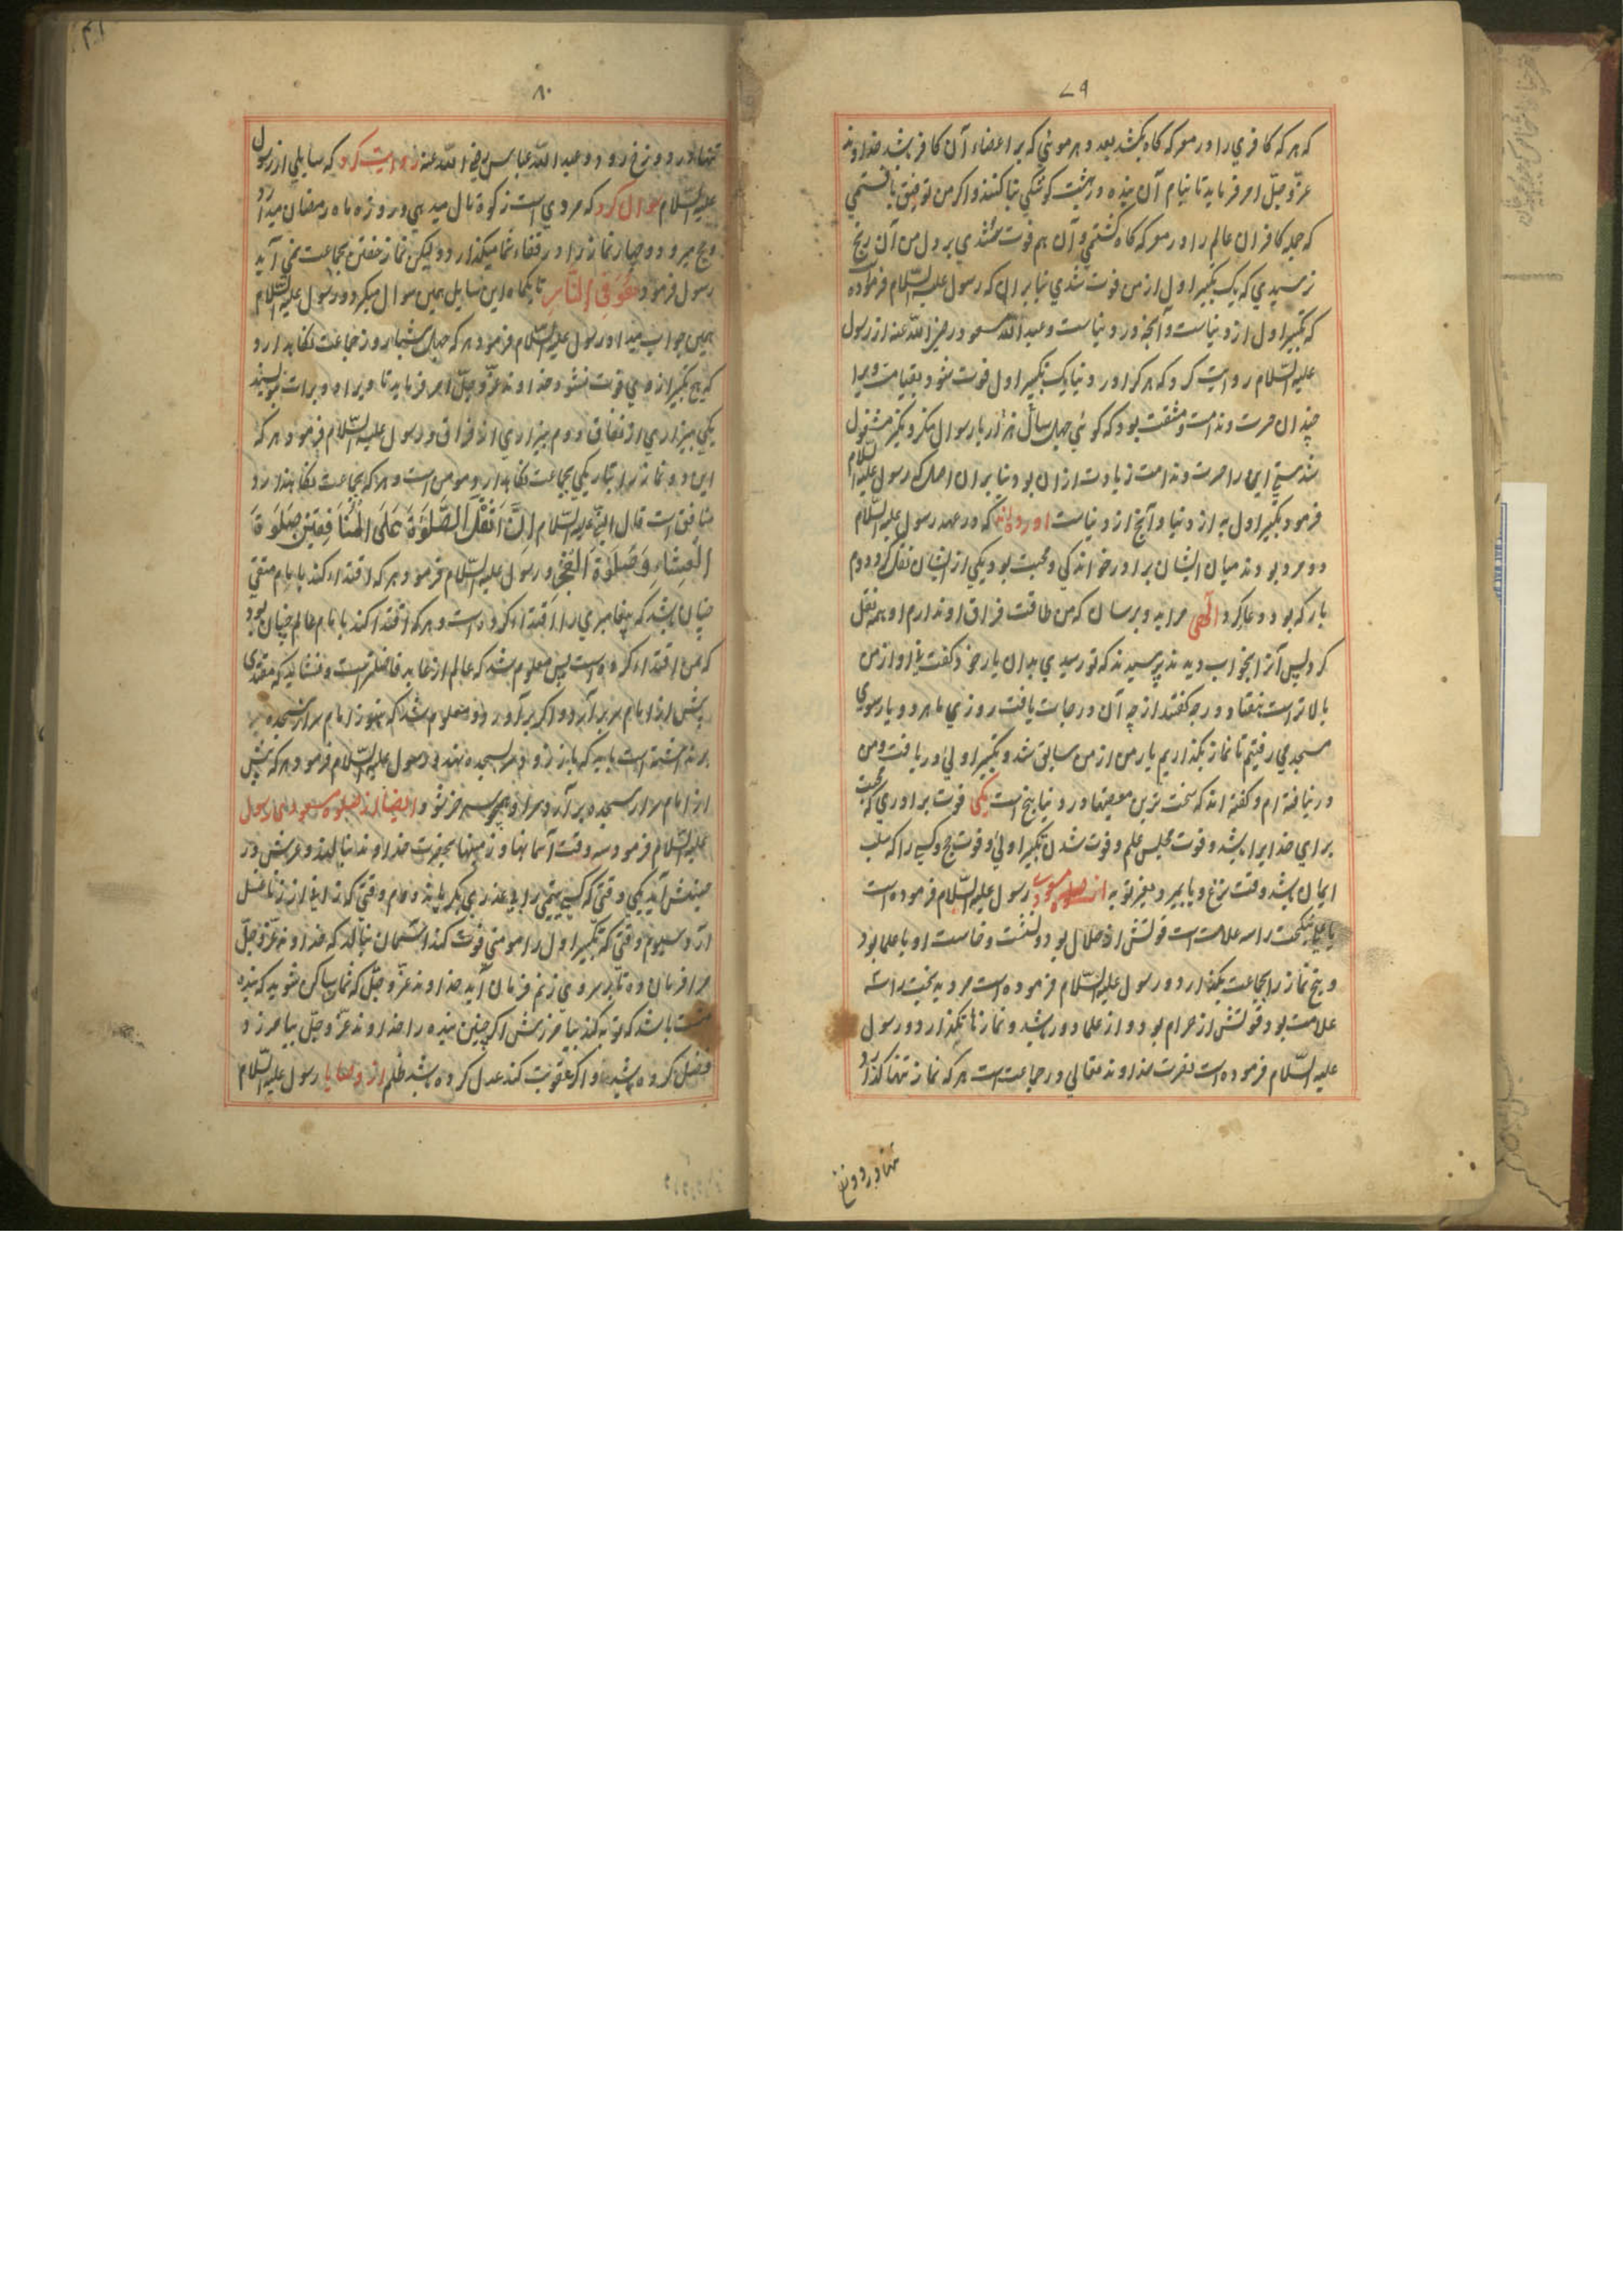 ۷۹
که هر که کافری را در معرکه گاه بکشد بعد و هر مویی که بر اعضاء آن کافر باشد خداوند
عزّ و جلّ امر فرماید تا بنام آن بنده در بهشت کوشکی بنا کنند و اگر من توفیق یافتمی
که جمله کافران عالم را در معرکه گاه کشتمی و آن هم فوت شدی بر دل من آن رنج
نرسیدی که یک تکبیر اول از من فوت شدی بنا بر ان که رسول علیه السّلام فرموده است
که تکبیر اول از دنیاست و آنچه در دنیاست و عبد الله مسعود رضی الله عنه از رسول
علیه السّلام روایت کرد که هر کرا در دنیا یک تکبیر اول فوت شود بقیامت ویرا
چندان حسرت و ندامت و مشقت بود که گوئی چهل سال هزار بار سوال منکر و نکیر مشغول
شدستی این را حسرت و ندامت زیادت از ان بود بنا بر ان اصل که رسول علیه السّلام
فرمود تکبیر اول به از دنیا و آنچ از دنیاست آورده اند که در عهد رسول علیه السّلام
دو مرد بودند میان ایشان برادر خواندگی و محبت بود یکی از ایشان نقل کرد دوم
یار که بود دعا کرد الهی مرا بدو برسان که من طاقت فراق او ندارم او هم نقل
کرد پس آنرا بخواب دیدند پرسیدند که تو رسیدی بدان یار خود گفت نی او از من
بالاتر است هفتاد درجه گفتند از چه آن درجات یافت روزی ما هر دو یار سوی
مسجد می رفتیم تا نماز بگذاریم یار من از من سابق شد و تکبیر اولی دریافت و من
در نیافته ام و گفته اند که سخت ترین مصیبتها در دنیا پنج است یکی فوت برادری که محبت
برای خدایرا باشد و فوت مجلس علم و فوت شدن تکبیر اولی و فوت حج و کسی را که سلب
ایمان باشد وقت نزع و یا بمیرد بغیر توبه از صلوه مسعودی رسول علیه السّلام فرموده است
نیکبخت را سه علامت است قوتش از حلال بود و نشست و خاست او با علما بود
و پنج نماز را بجماعت بگذارد و رسول علیه السّلام فرموده است مرد بدبخت را سه
علامت بود قوتش از حرام بود و از علما دور باشد و نماز تنها بگذارد و رسول
علیه السّلام فرموده است نصرت خداوند تعالی در جماعت است هر که نماز تنها گذارد او
تنها در دوزخ
۸۰
تنها در دوزخ رود و عبد الله عباس رضی الله عنه روایت کرد که سایلی از رسول
علیه السّلام سوال کرد که مردی است زکوة مال میدهد و روزه ماه رمضان میدارد
و حج میرود و چهار نماز را در قضاء نمیگذارد و لیکن نماز خفتن بجماعت نمی آید
رسول فرمود هُوَ فِی النَّارِ تا یکماه این سایل همین سوال میکرد و رسول علیه السّلام
همین جواب میداد رسول علیه السّلام فرمود هر که چهل شبانروز جماعت نگاهدارد
که هیچ تکبیر از وی فوت نشود خداوند عزّ و جلّ امر فرماید تا ویرا دو برات نویسند
یکی بیزاری از نفاق دوم بیزاری از فراق و رسول علیه السّلام فرمود هر که
این دو نماز را بتاریکی بجماعت نگاهدارد مومن است و هر که بجماعت نگاه ندارد
منافق است قال النبی علیه السّلام اِنَّ اَثْقَلَ الصَّلٰوةَ عَلَی الْمُنَافِقِیْنَ صَلٰوةَ
الْعِشَاءِ وَ صَلٰوةَ الْفَجْرِ و رسول علیه السّلام فرمود هر که اقتداء کند با امام متقی
چنان باشد که پیغامبری را اقتداء کرده است و هر که اقتدا کند با امام عالم چنان بود
که بمن اقتداء کرده است پس معلوم شد که عالم از عابد فاضلتر است و نشاید که مقتدی
پیش از امام سر بر آرد و اگر بر آورد و معلوم شد که هنوز امام سر از سجده
بر نداشته است باید که باز زود سر بسجده نهد و رسول علیه السّلام فرمود هر که پیش
از امام سر از سجده بر آرد سر او همچو سر خر شود ایضا از صلوه مسعودی رسول
علیه السّلام فرمود سه وقت آسمانها و زمینها بحضرت خداوند بنالند و عرش در
جنبش آید یکی وقتی که کسی یتیمی را بی عذری بگریاند دوم وقتی که زانی از زنا غسل
آرد سیوم وقتی که تکبیر اول را مومنی فوت کند آسمان بنالد که خداوند عزّ و جلّ
مرا فرمان ده تا بر سر وی زنم فرمان آید خداوند عزّ و جلّ که شما ساکن شوید که بنده
منست باشد که توبه کند بیامرزمش اگر چنین بنده را خداوند عزّ و جلّ بیامرزد
فضل کرده باشد و اگر عقوبت کند عدل کرده باشد نه ظلم از وصایا رسول علیه السّلام